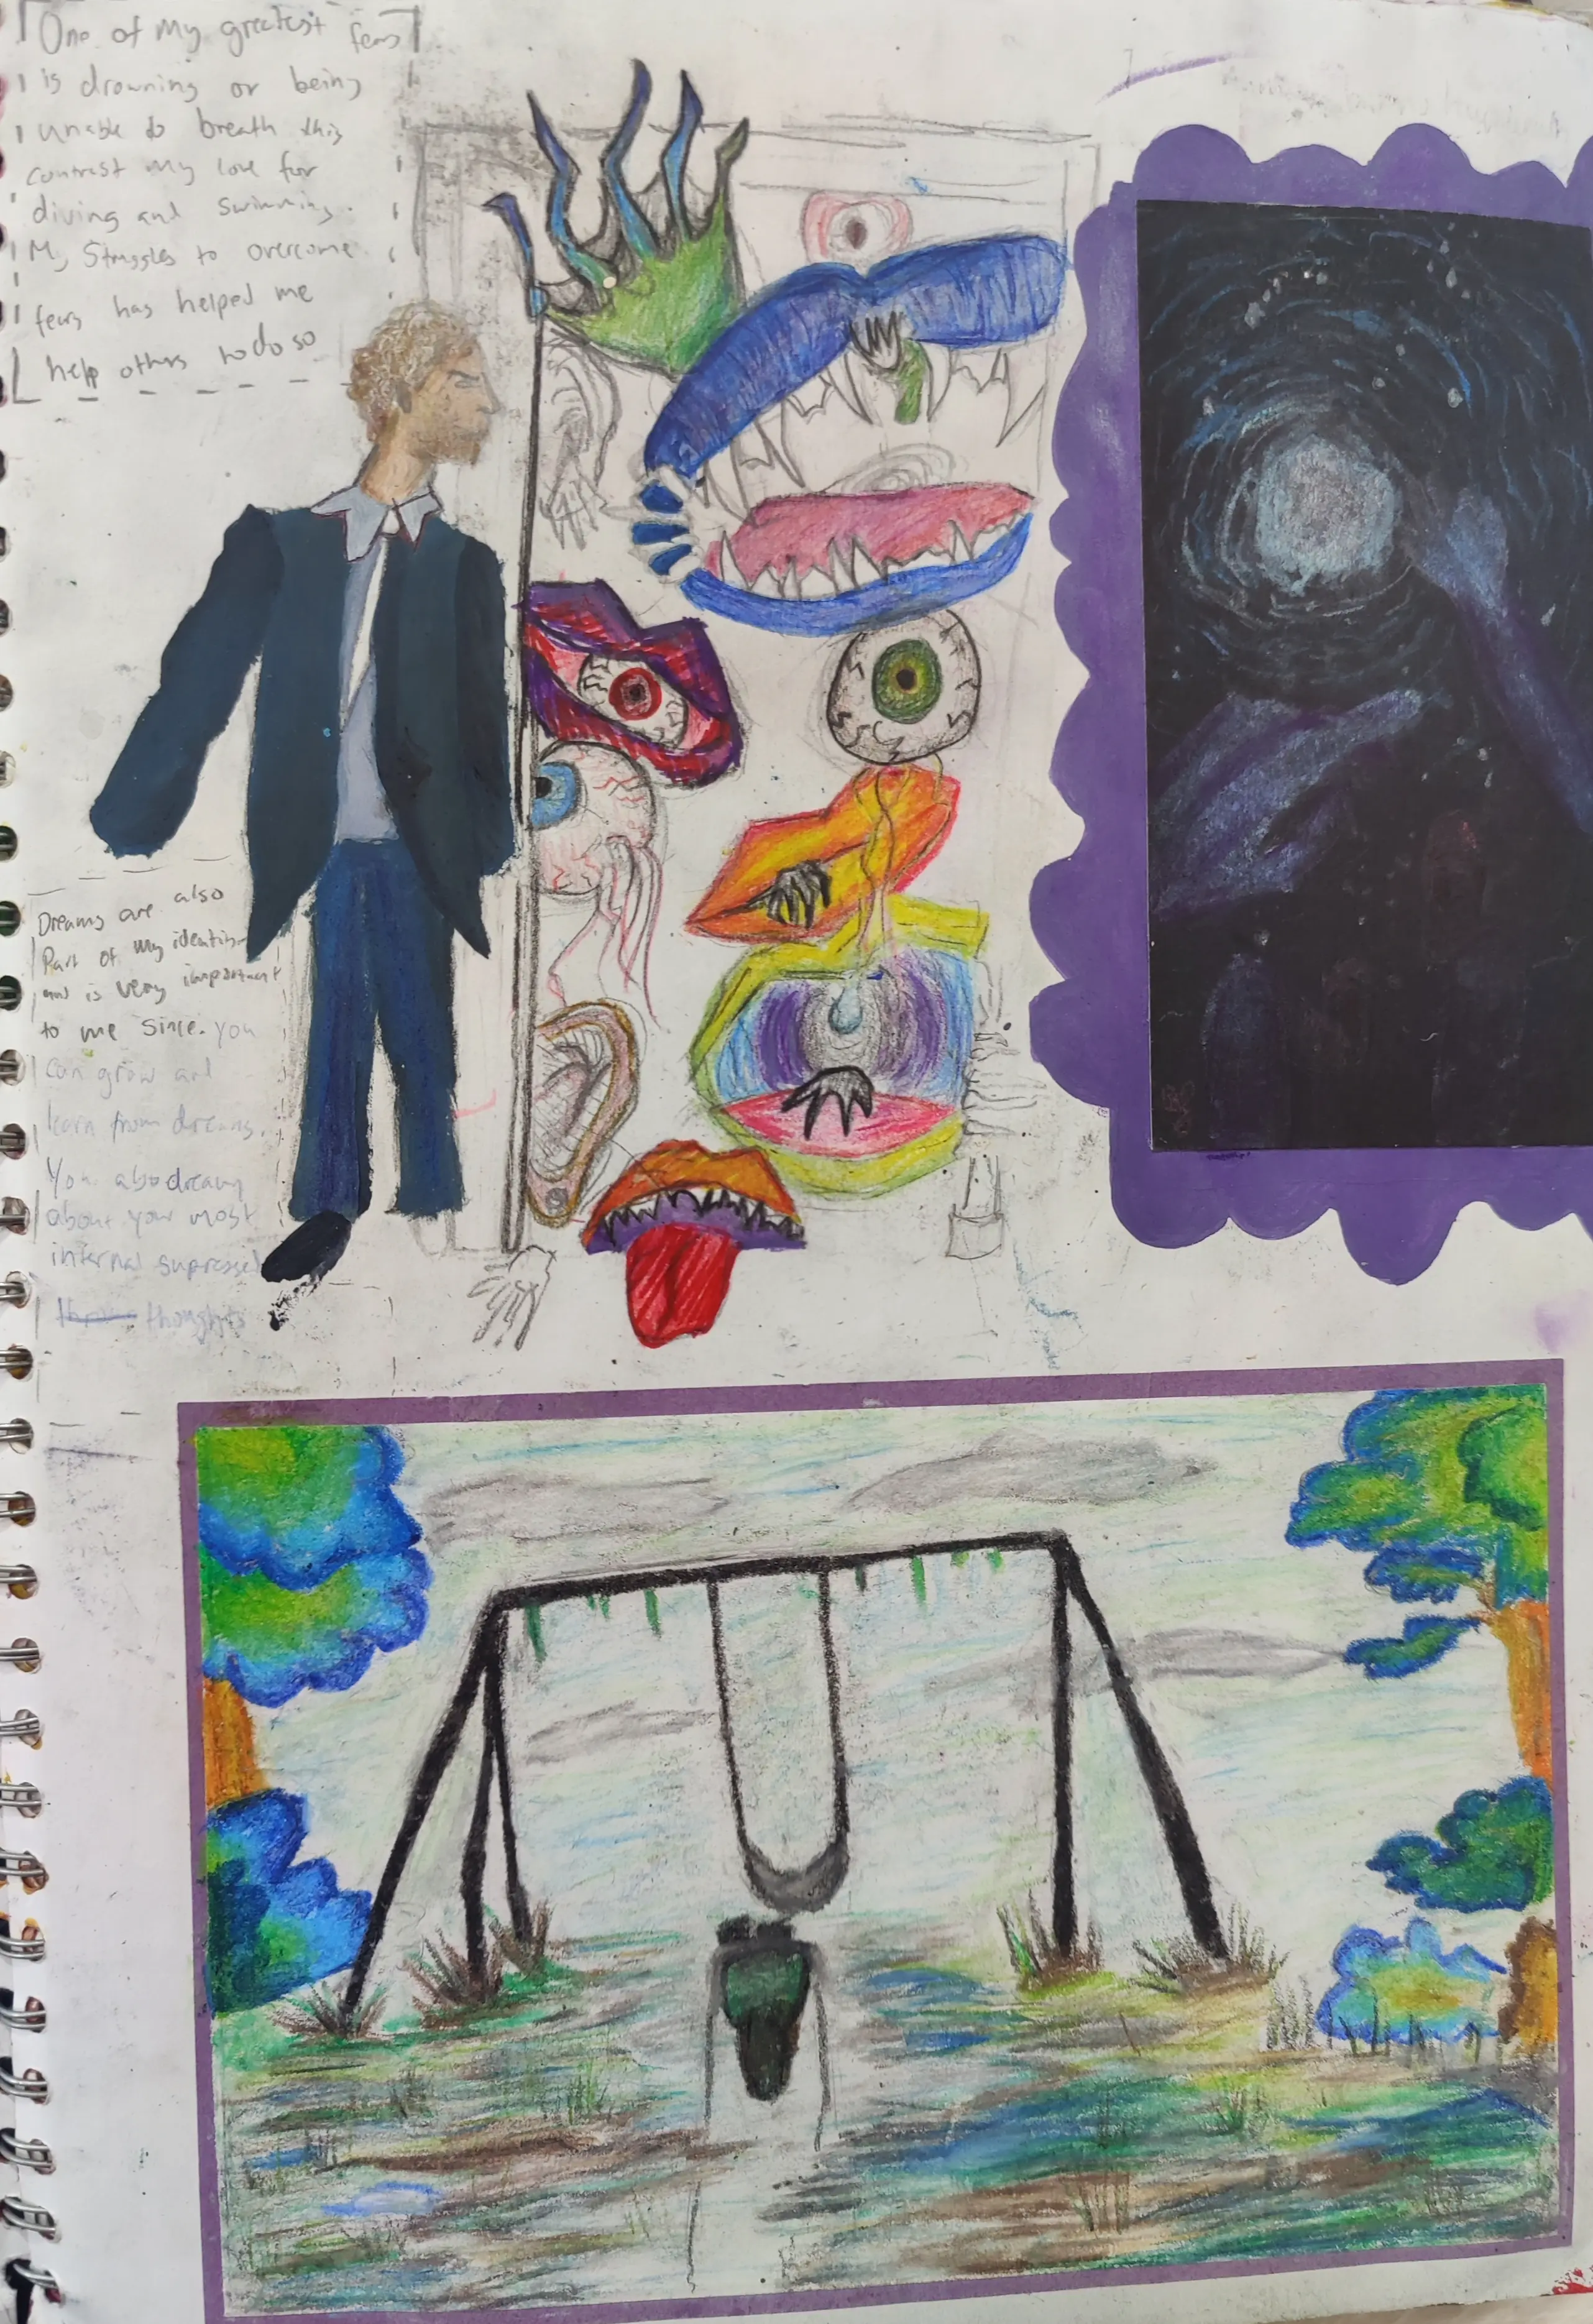 One of my greatest fears
is drowning or being
unable to breath this
contrast my love for
diving and swimming.
My Struggles to overcome
fears has helped me
help others to do so
Dreams are also
Part of my identity
and is very important
to me since. you
can grow and
learn from dreams.
You also dream
about your most
internal supressed
thoughts